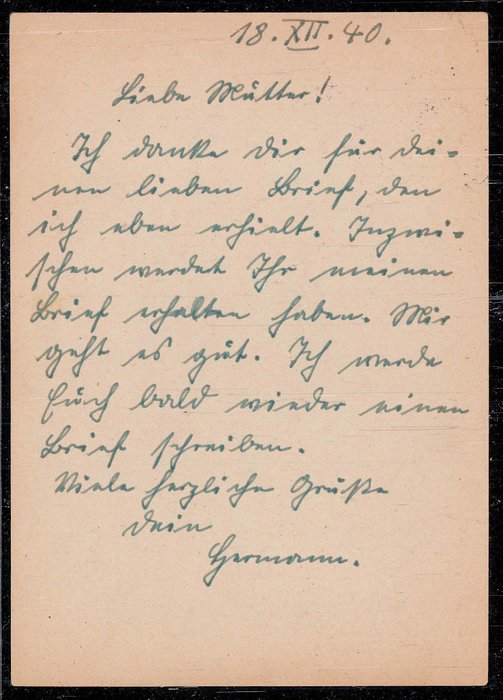 18. XII. 40.
Liebe Mutter!
Ich danke dir für dei-
nen lieben Brief, den
ich eben erhielt. Inzwi-
schen werdet Ihr meinen
Brief erhalten haben. Mir
geht es gut. Ich werde
Euch bald wieder einen
Brief schreiben.
Viele herzliche Grüße
Dein
Hermann.